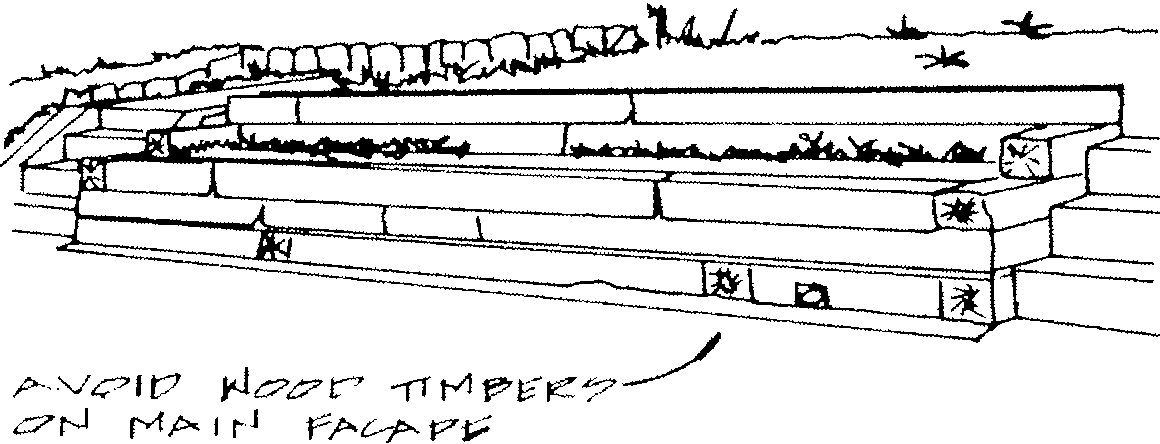 AVOID WOOD TIMBERS
ON MAIN FACADE